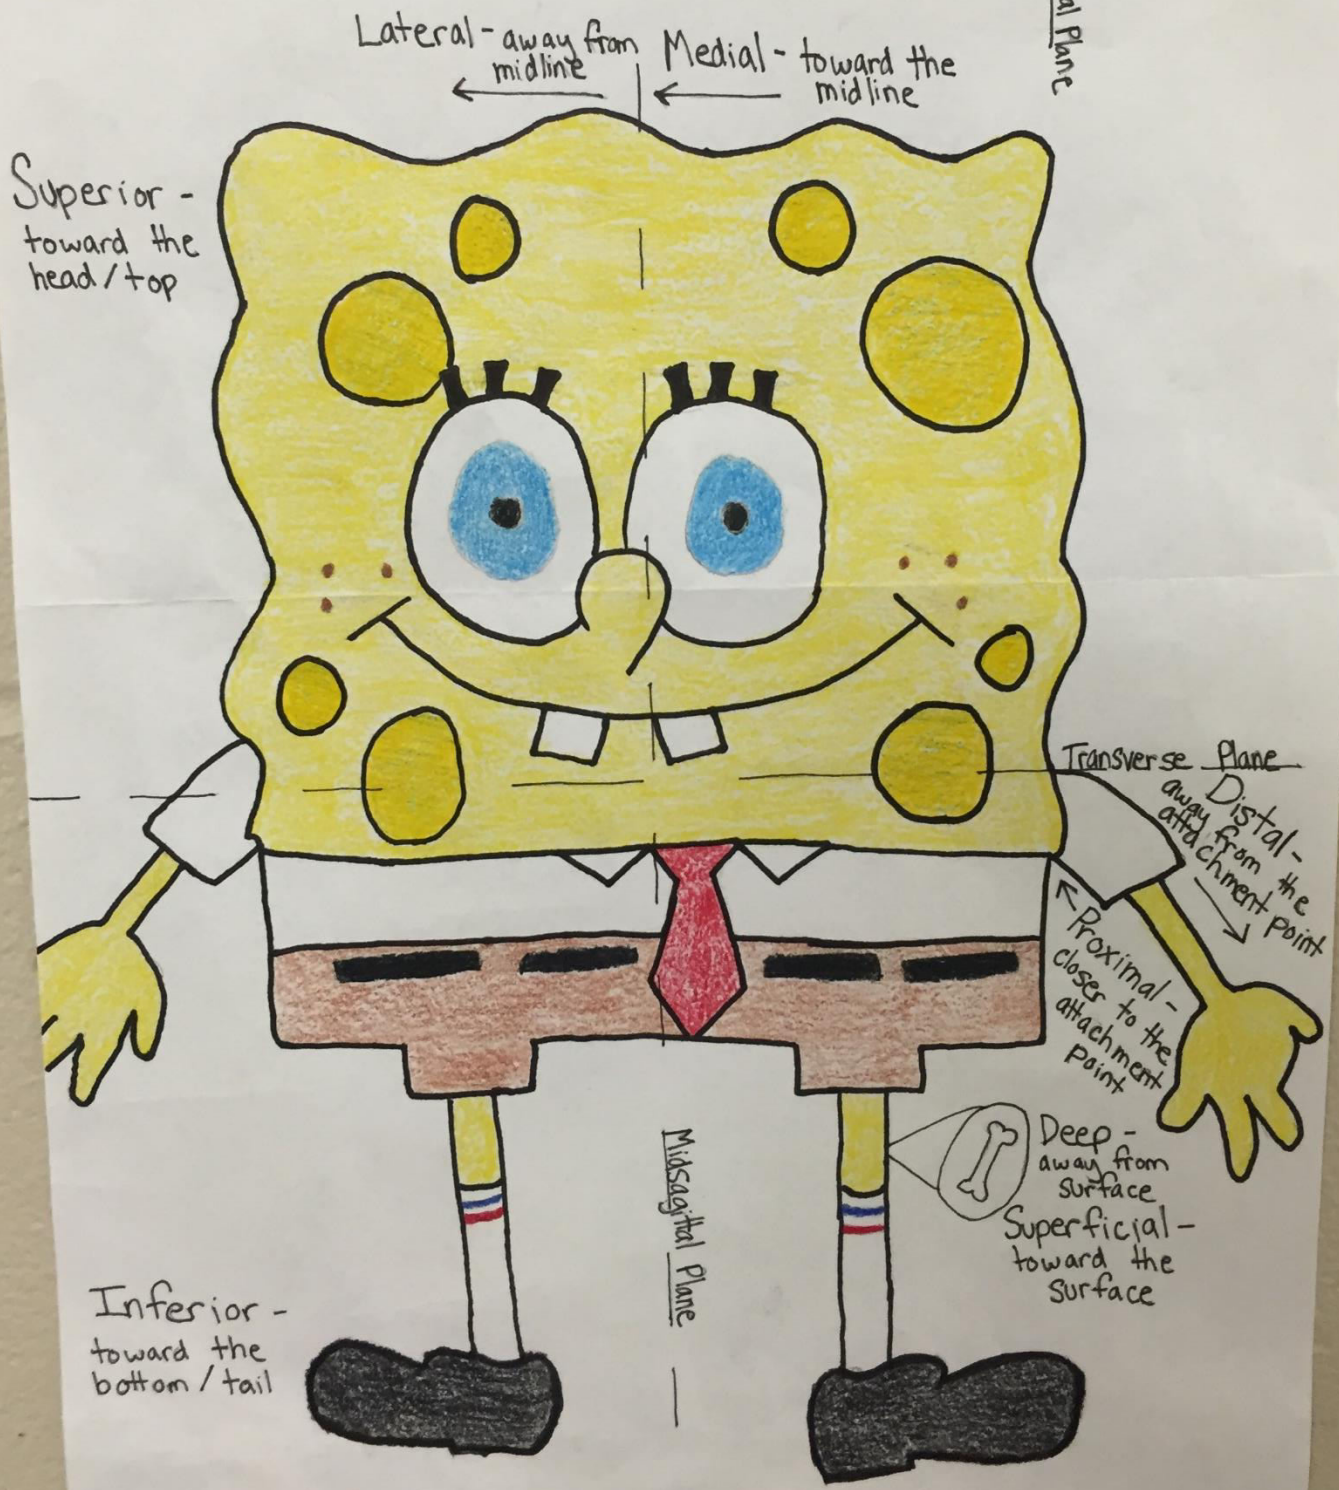 al Plane
Lateral - away from
midline
Medial - toward the
midline
Superior -
toward the
head/top
Transverse Plane
Distal -
away from the
attachment point
Proximal -
closer to the
attachment
point
Midsagittal Plane
Deep -
away from
surface
Superficial -
toward the
surface
Inferior -
toward the
bottom/tail